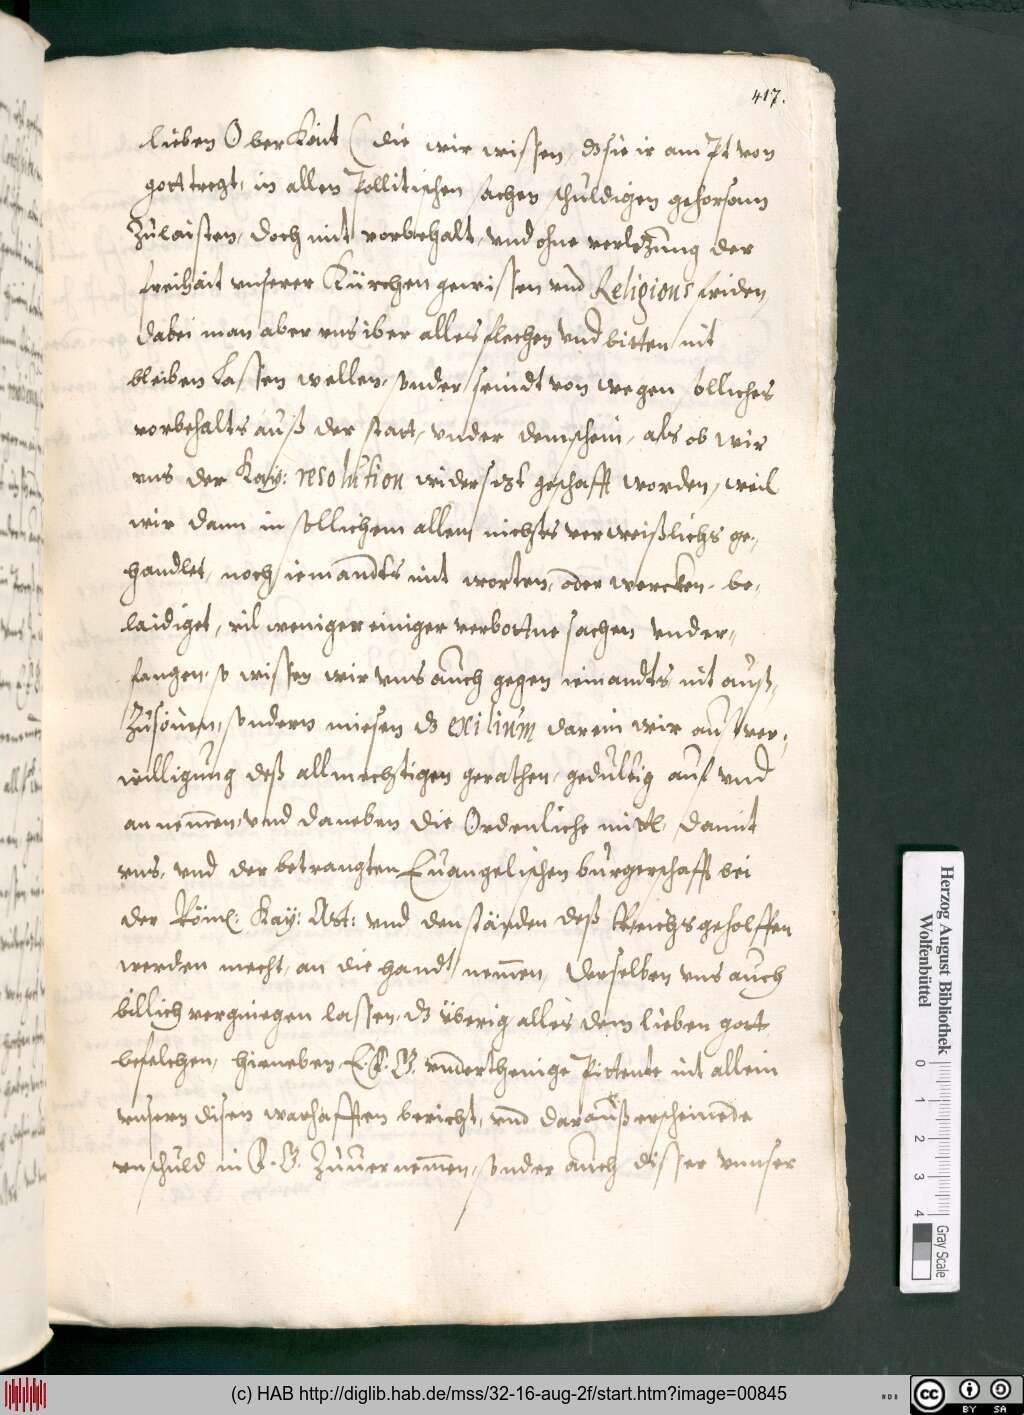 417.
lieben Oberkeit (die wir wissen, dz sie ir ampt von
gott tregt, in allen Pollitischen sachen schuldigen gehorsam
Zulaisten, doch mit vorbehalt, vnd ohne verletzung der
freihait vnserer Kürchen gewissen vnd Religions friden,
dabei man aber vns iber alles flechen vnd bitten nit
bleiben lassen wellen, sonder seindt von wegen solliches
vorbehalts auß der statt, vnder dem schein, als ob wir
vns der Kay: resolution widersizt geschafft worden, weil
wir dann in sollichem allem nichts verweißlichs ge-,
handlet, noch iemandts mit worten, oder wercken, be-,
laidiget, vil weniger einiger verbottne sachen vnder-,
fangen, so wissen wir vns auch gegen iemandts nit auß-,
Zusönen, sondern miesen dz exilium darein wir auß ver-,
willigung deß allmechtigen gerathen, gedultig auf vnd
an nemen, vnd daneben die Ordenliche mittl, damit
vns, vnd der betrangten Euangelischen burgerschafft bei
der Röm: Kay: Mt: vnd den ständen deß Reichs geholffen
werden mecht, an die handt nemen, derselben vns auch
billich vergniegen lassen, dz überig alles dem lieben gott
befelchen, hieneben E. G. vnderthenige Pittente nit allein
vnsern disen warhafften bericht, vnd darauß erscheinende
vnschuld in G. Zuuernemen, sonder auch disser vnnser
Herzog August Bibliothek
Wolfenbüttel
0 1 2 3 4
Gray Scale
(c) HAB http://diglib.hab.de/mss/32-16-aug-2f/start.htm?image=00845
WDB
cc BY SA